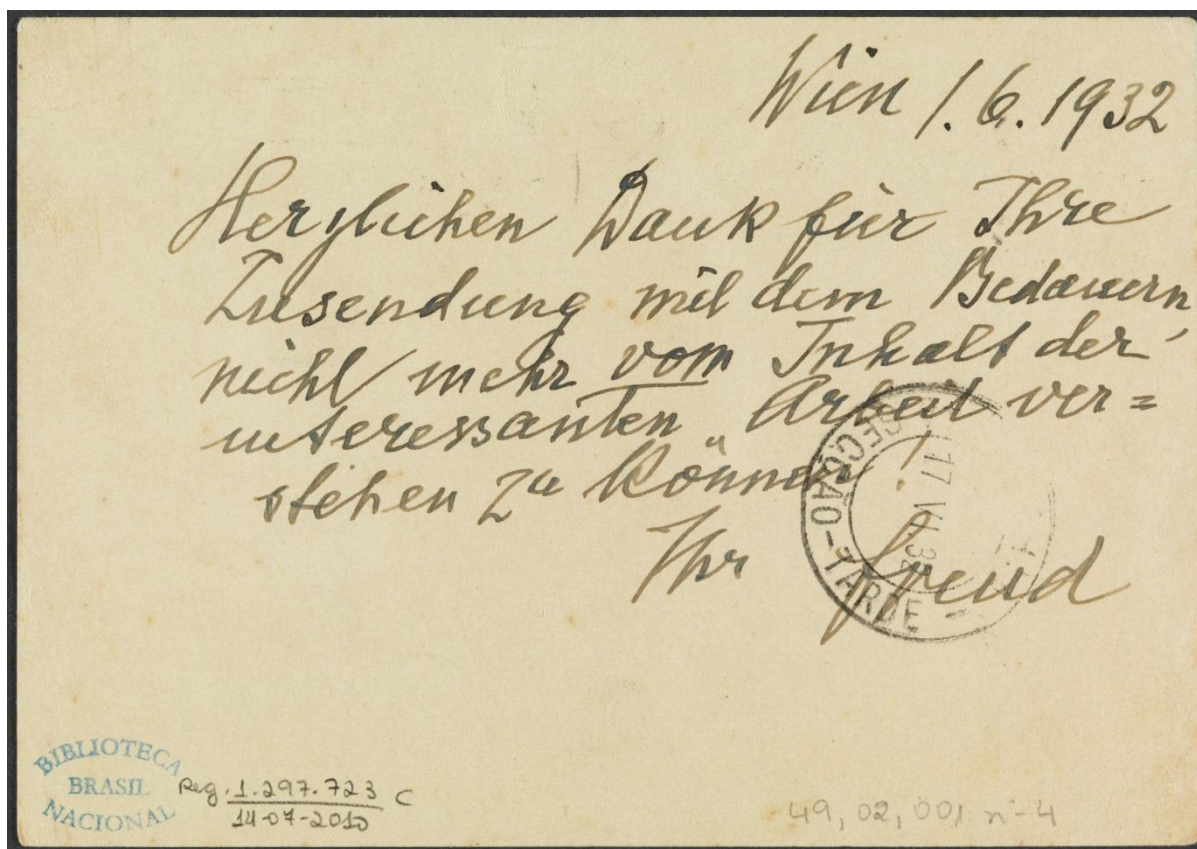 Wien 1.6.1932
Herzlichen Dank für Ihre
Zusendung mit dem Bedauern,
nicht mehr vom Inhalt der
interessanten Arbeit ver=
stehen zu können!
Ihr Freud
SECÇÃO-TARDE-
17 VI 32
BIBLIOTECA
BRASIL
NACIONAL
Reg. 1.297.723 C
14-07-2010
49,02,001 nº 4